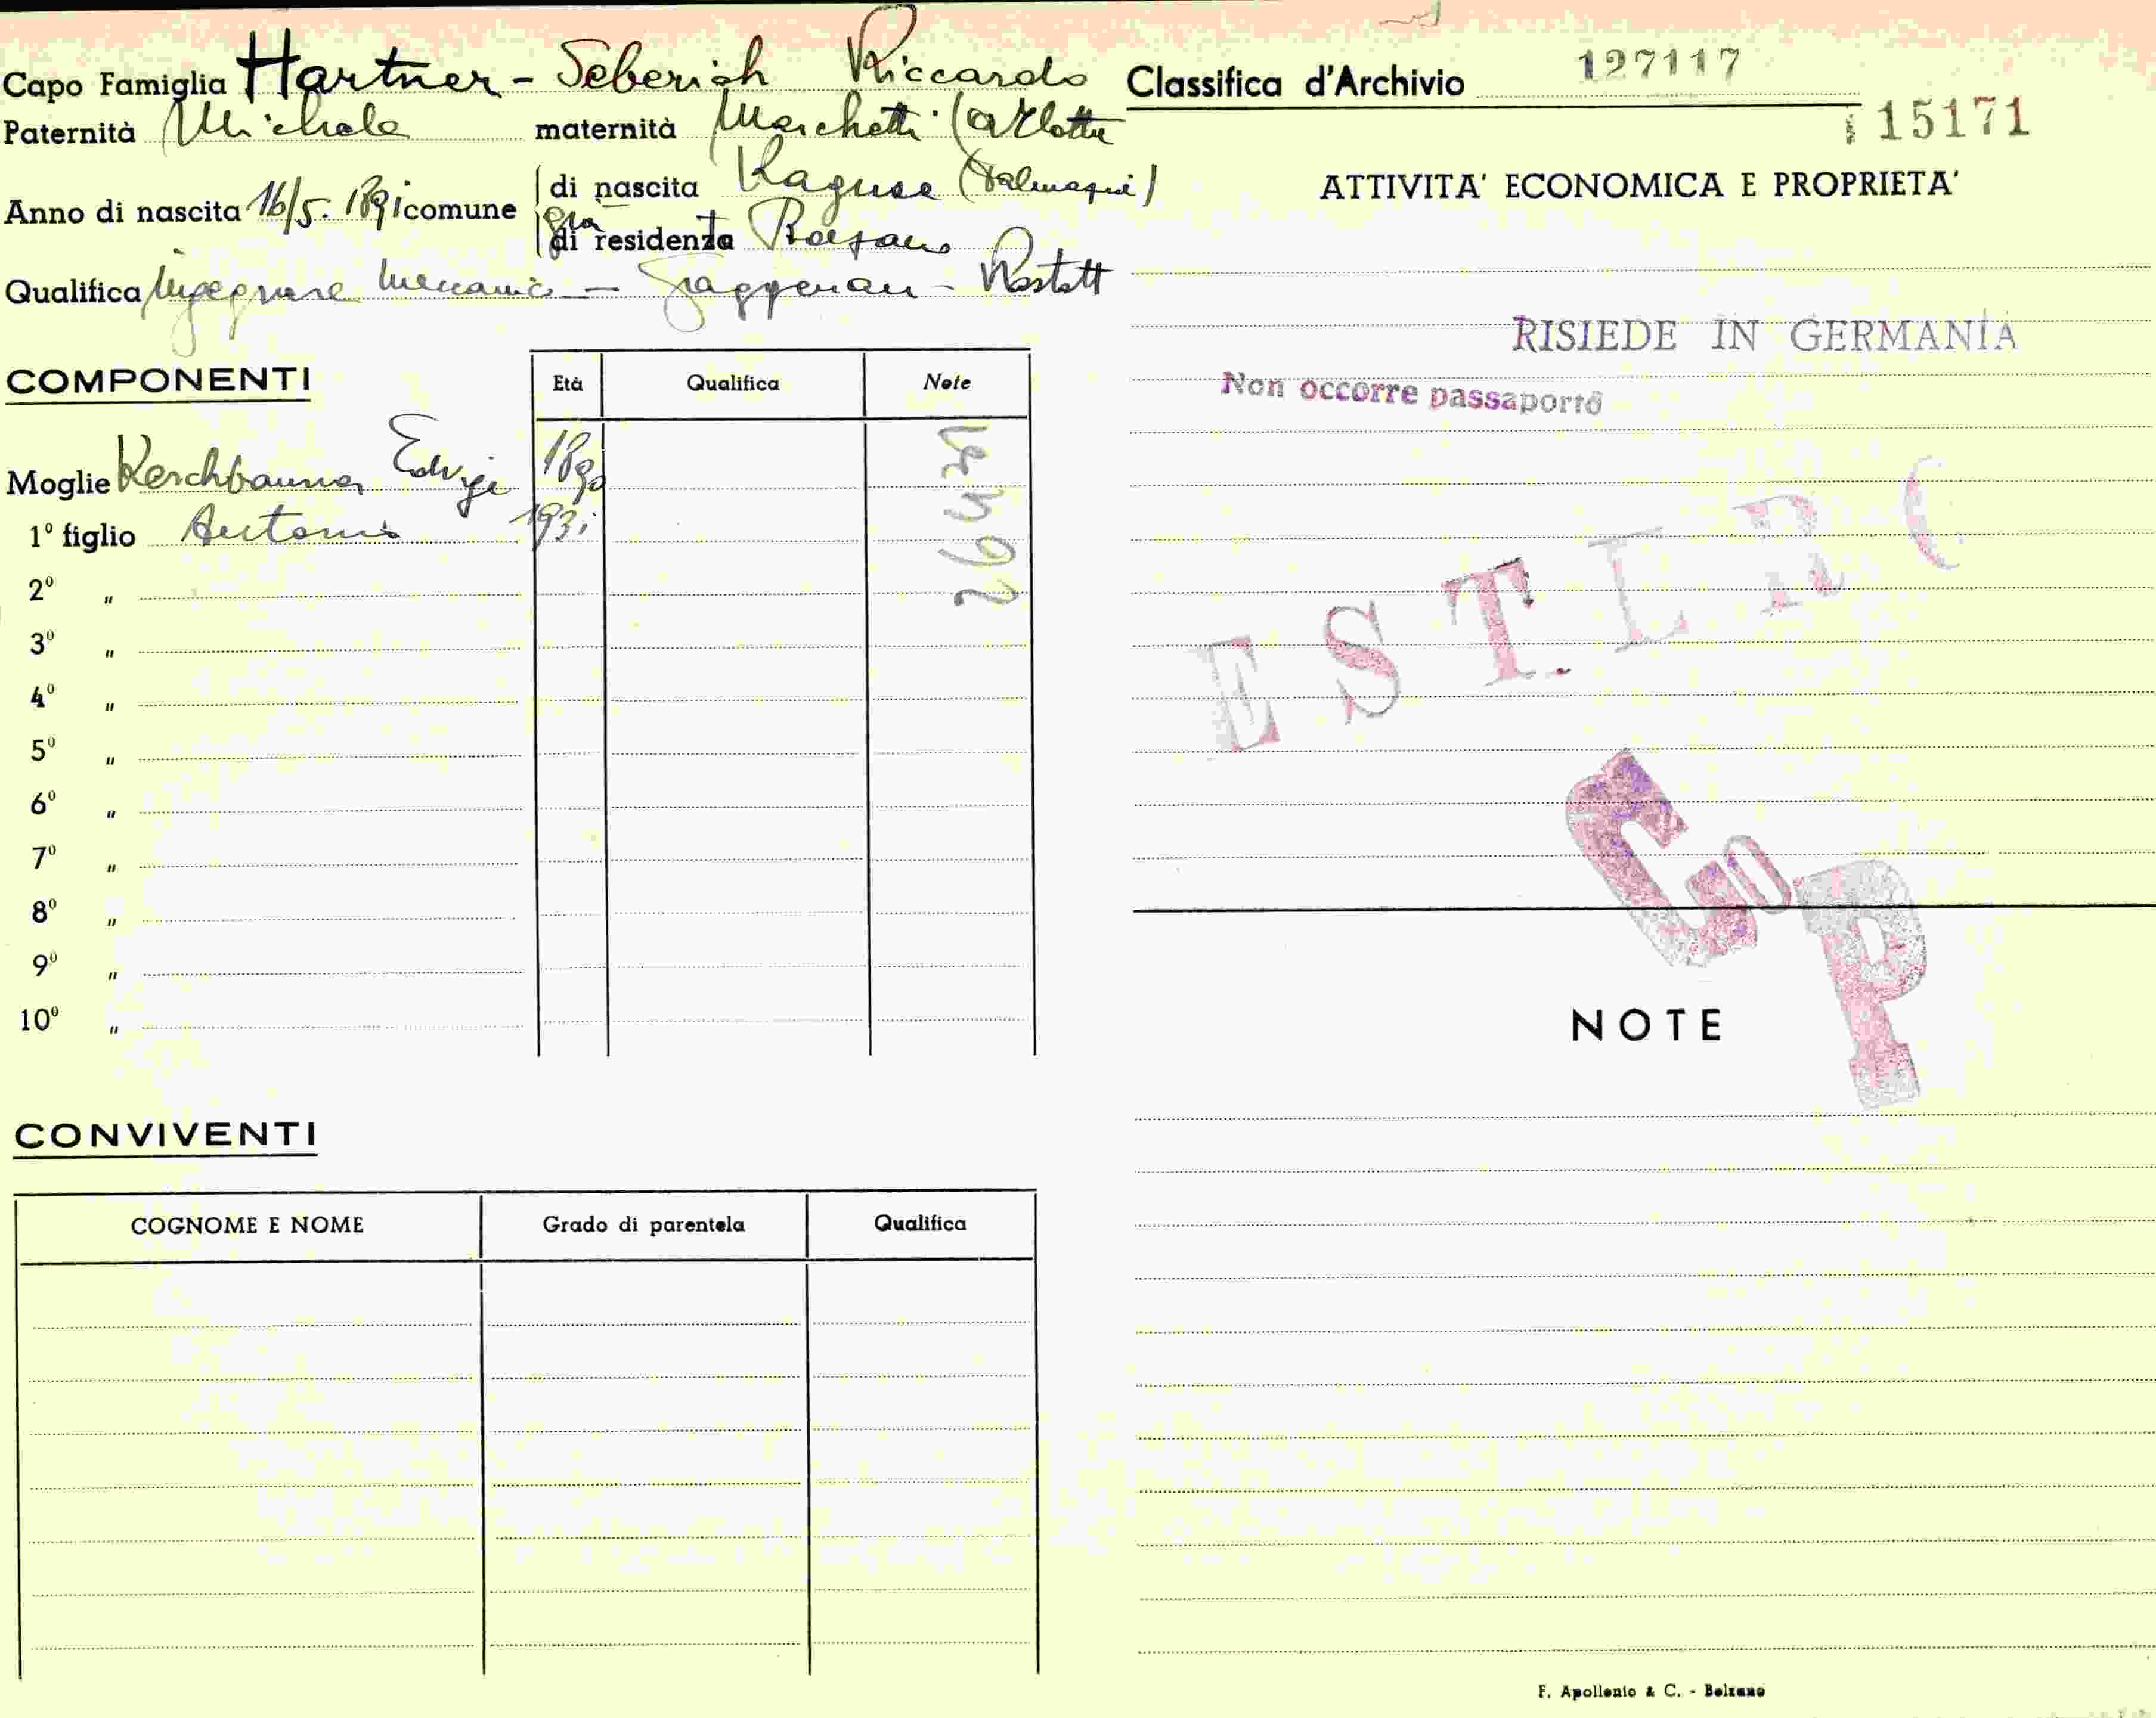 Capo Famiglia Hartner - Seberich Riccardo
Paternità Michele maternità Marchetti Carlotta
Anno di nascita 16/5. 1891 comune di nascita Ragusa (Dalmazia)
già di residenza Bolzano
Qualifica Ingegnere meccanico - Gaggenau - Rastatt
COMPONENTI
Età Qualifica Note
Moglie Kerschbaumer Edvige 1890
1º figlio Antonio 1931
2º „
3º „
4º „
5º „
6º „
7º „
8º „
9º „
10º „
CONVIVENTI
COGNOME E NOME Grado di parentela Qualifica
Classifica d'Archivio 127117
15171
ATTIVITA' ECONOMICA E PROPRIETA'
RISIEDE IN GERMANIA
Non occorre passaporto
ESTER
Co P
NOTE
F. Apollonio & C. - Bolzano